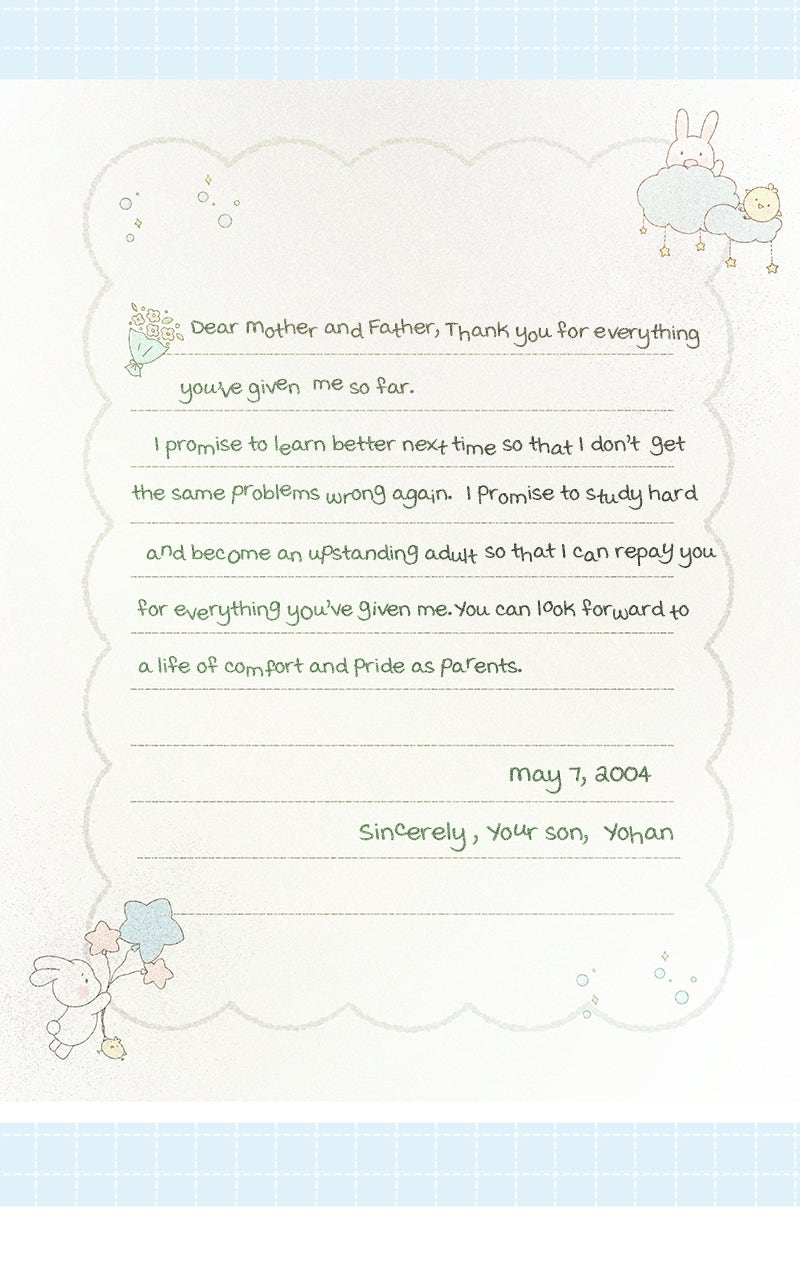 Dear Mother and Father, Thank you for everything
you've given me so far.
I promise to learn better next time so that I don't get
the same problems wrong again. I promise to study hard
and become an upstanding adult so that I can repay you
for everything you've given me. You can look forward to
a life of comfort and pride as parents.
May 7, 2004
Sincerely, your son, Yohan